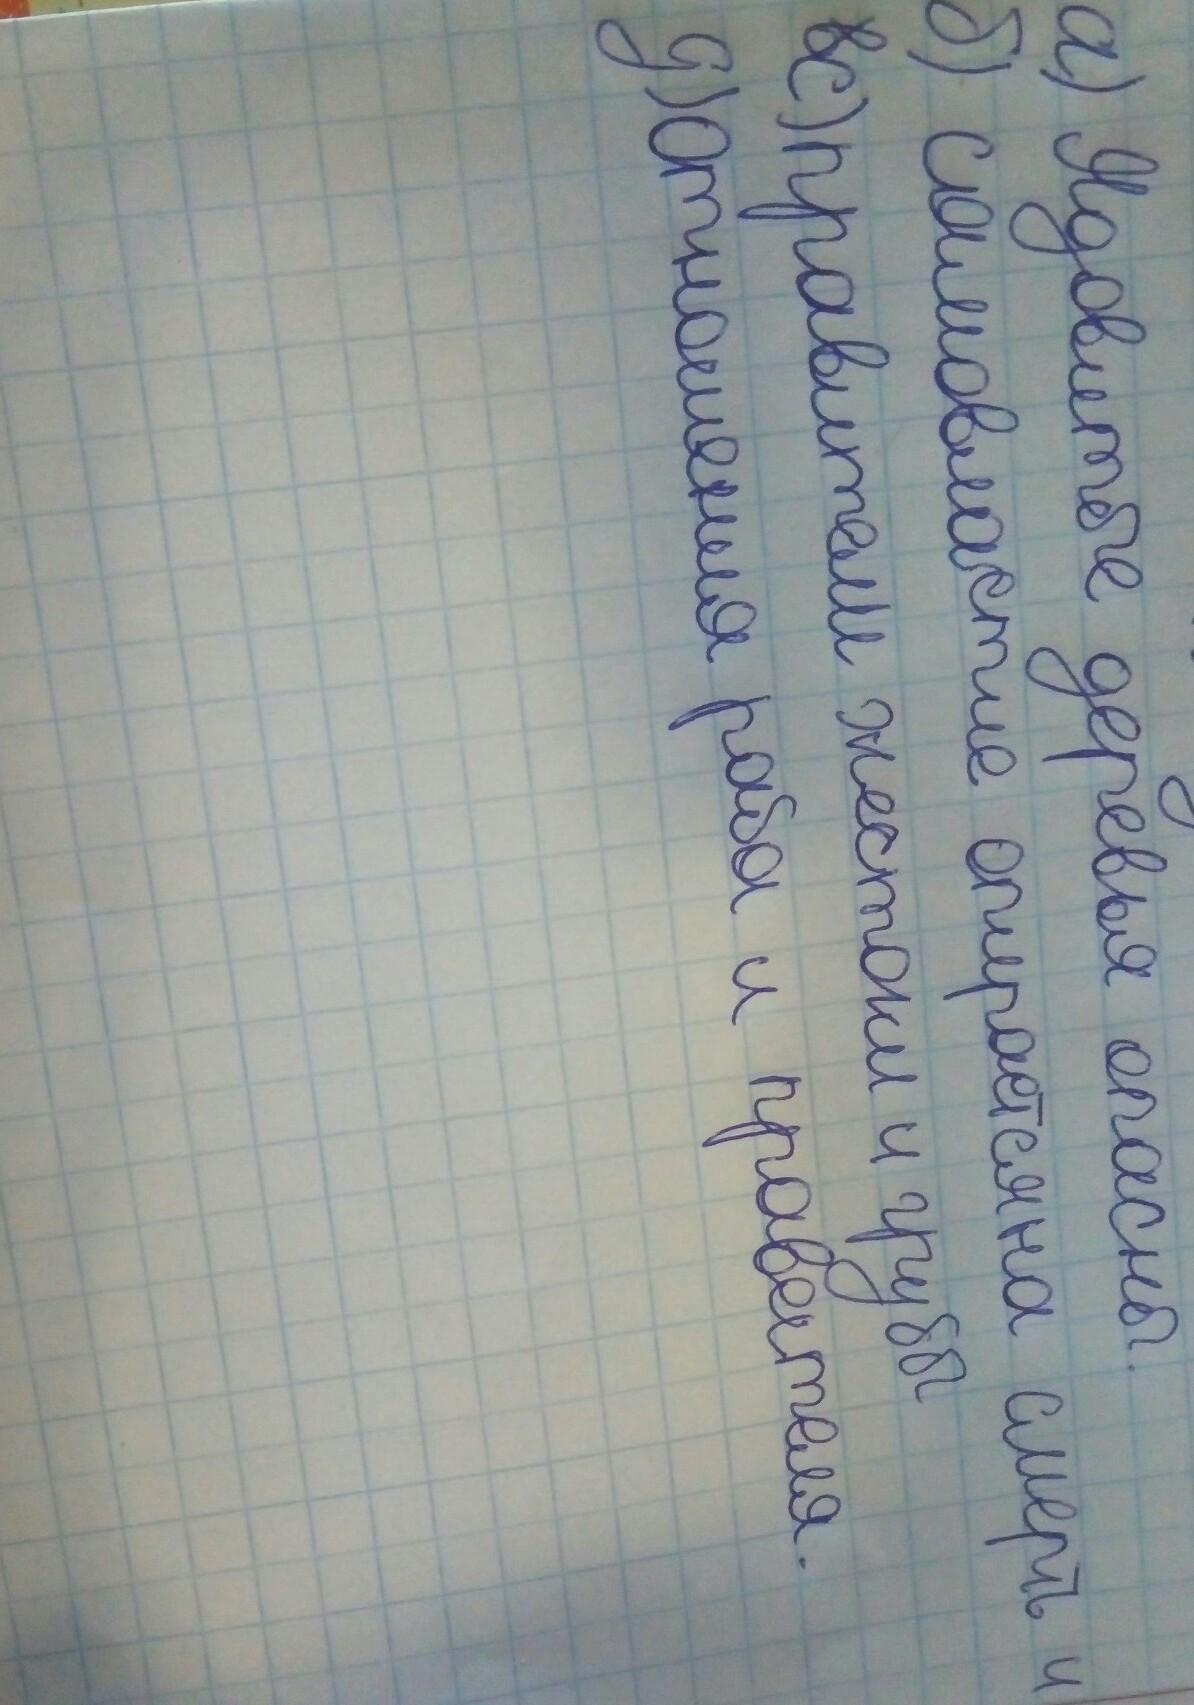 а) Ядовитые деревья опасны.
б) Самовластие опирается на смерть и
с) правители жестоки и грубы
д) Отношения раба и правителя.